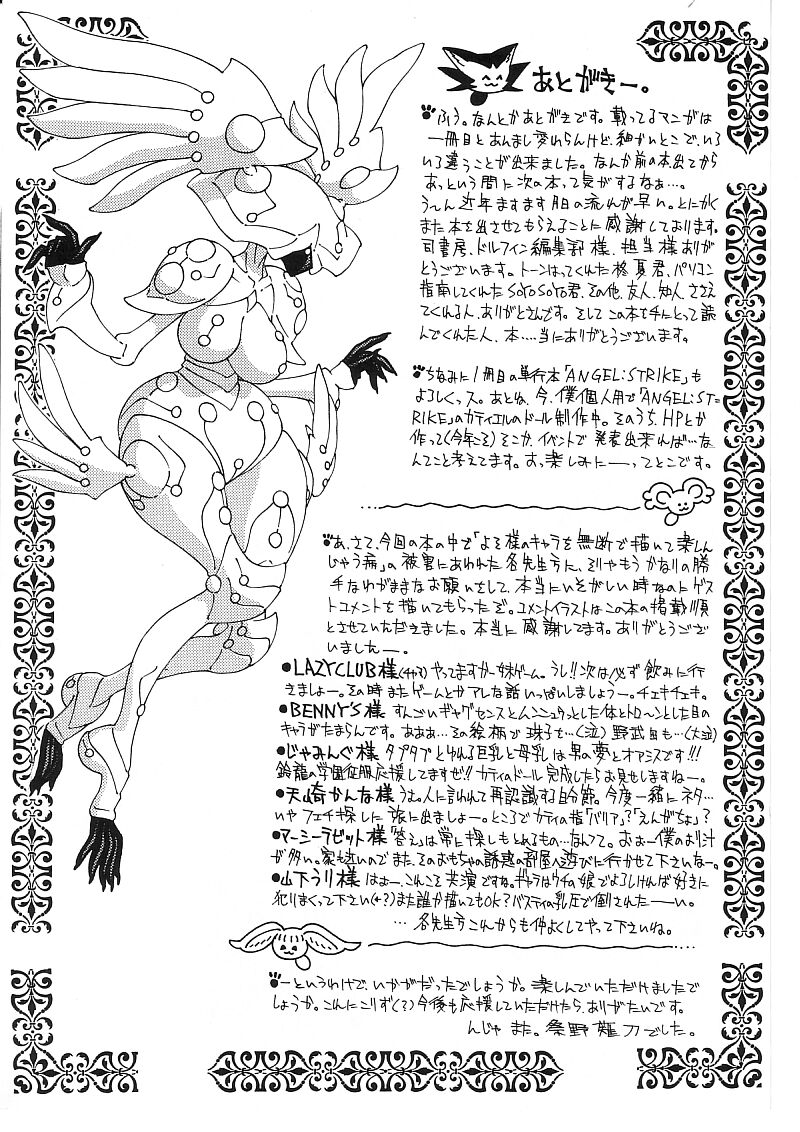 あとがきー。
ふう。なんとかあとがきです。載ってるマンガは
一冊目とあんまし変わらんけど、細かいとこで、いろ
いろ違うことが出来ました。なんか前の本出てから
あっという間に次の本って気がするなぁ…。
う〜ん近年ますます月日の流れが早い。とにかく
また本を出させてもらえることに感謝しております。
司書房、ドルフィン編集部様、担当様ありが
とうございます。トーンはってくれた柊夏君、パソコン
指南してくれたSOYOSOYO君、その他、友人、知人、ささえ
てくれる人、ありがとさんです。そしてこの本を手にとって読
んでくれた人、本…当にありがとうございます。
ちなみに1冊目の単行本「ANGEL:STRIKE」も
よろしくっス。あとね、今、僕個人用で「ANGEL:ST-
RIKE」のカティエルのドール制作中。そのうち、HPとか
作って(今年ごろ)そこか、イベントで発表出来れば…な
んてこと考えてます。お楽しみにーってとこです。
あ、さて、今回の本の中で「よそ様のキャラを無断で描いて楽しん
じゃう病」の被害にあわれた各先生方に、そりゃもうかなりの勝
手なわがままなお願いをして、本当にいそがしい時なのにゲス
トコメントを描いてもらったぞ。コメントイラストはこの本の掲載順
とさせていただきました。本当に感謝してます。ありがとうござ
いましたー。
●LAZYCLUB様 やってますかー妹ゲーム。うし!!次は必ず飲みに行
きましょー。その時またゲームとかアレな話いっぱいしましょうー。チェキチェキ。
●BENNY'S様 すんごいギャグセンスとムンニュうっとした体とトロ〜ンとした目の
キャラがたまらんです。あああ…その絵柄で珠子を…(泣)野武目も…(大泣)
●じゃみんぐ様 タプタプとゆれる巨乳と母乳は男の夢とオアシスです!!!
鈴龍の学園征服応援してますぜ!!カティのドール完成したらお見せしますねー。
●天山奇かんな様 うむ。人に言われて再認識する自分節。今度一緒にネタ…
いやフェチ探しに旅に出ましょー。ところでカティの指「バリア」?「えんがちょ」?
●マーシーラビット様「答え」は常に探しもとめるもの…なんつて。おおー僕のお汁
が多い。家も近いのでまた、そのおもちゃの誘惑の部屋へ遊びに行かせて下さいなー。
●山下うり様 はぉー、これこそ共演ですね。キャラはウチの娘でよろしければ好きに
犯りまくって下さい(*?)また誰か描いてもOK?バスティの乳圧で倒されたーい。
…各先生方これからも仲よくしてやって下さいね。
ーというわけで、いかがだったでしょうか。楽しんでいただけましたで
しょうか。これにこりず(?)今後も応援していただけたら、ありがたいです。
んじゃ また。桑野 刀でした。